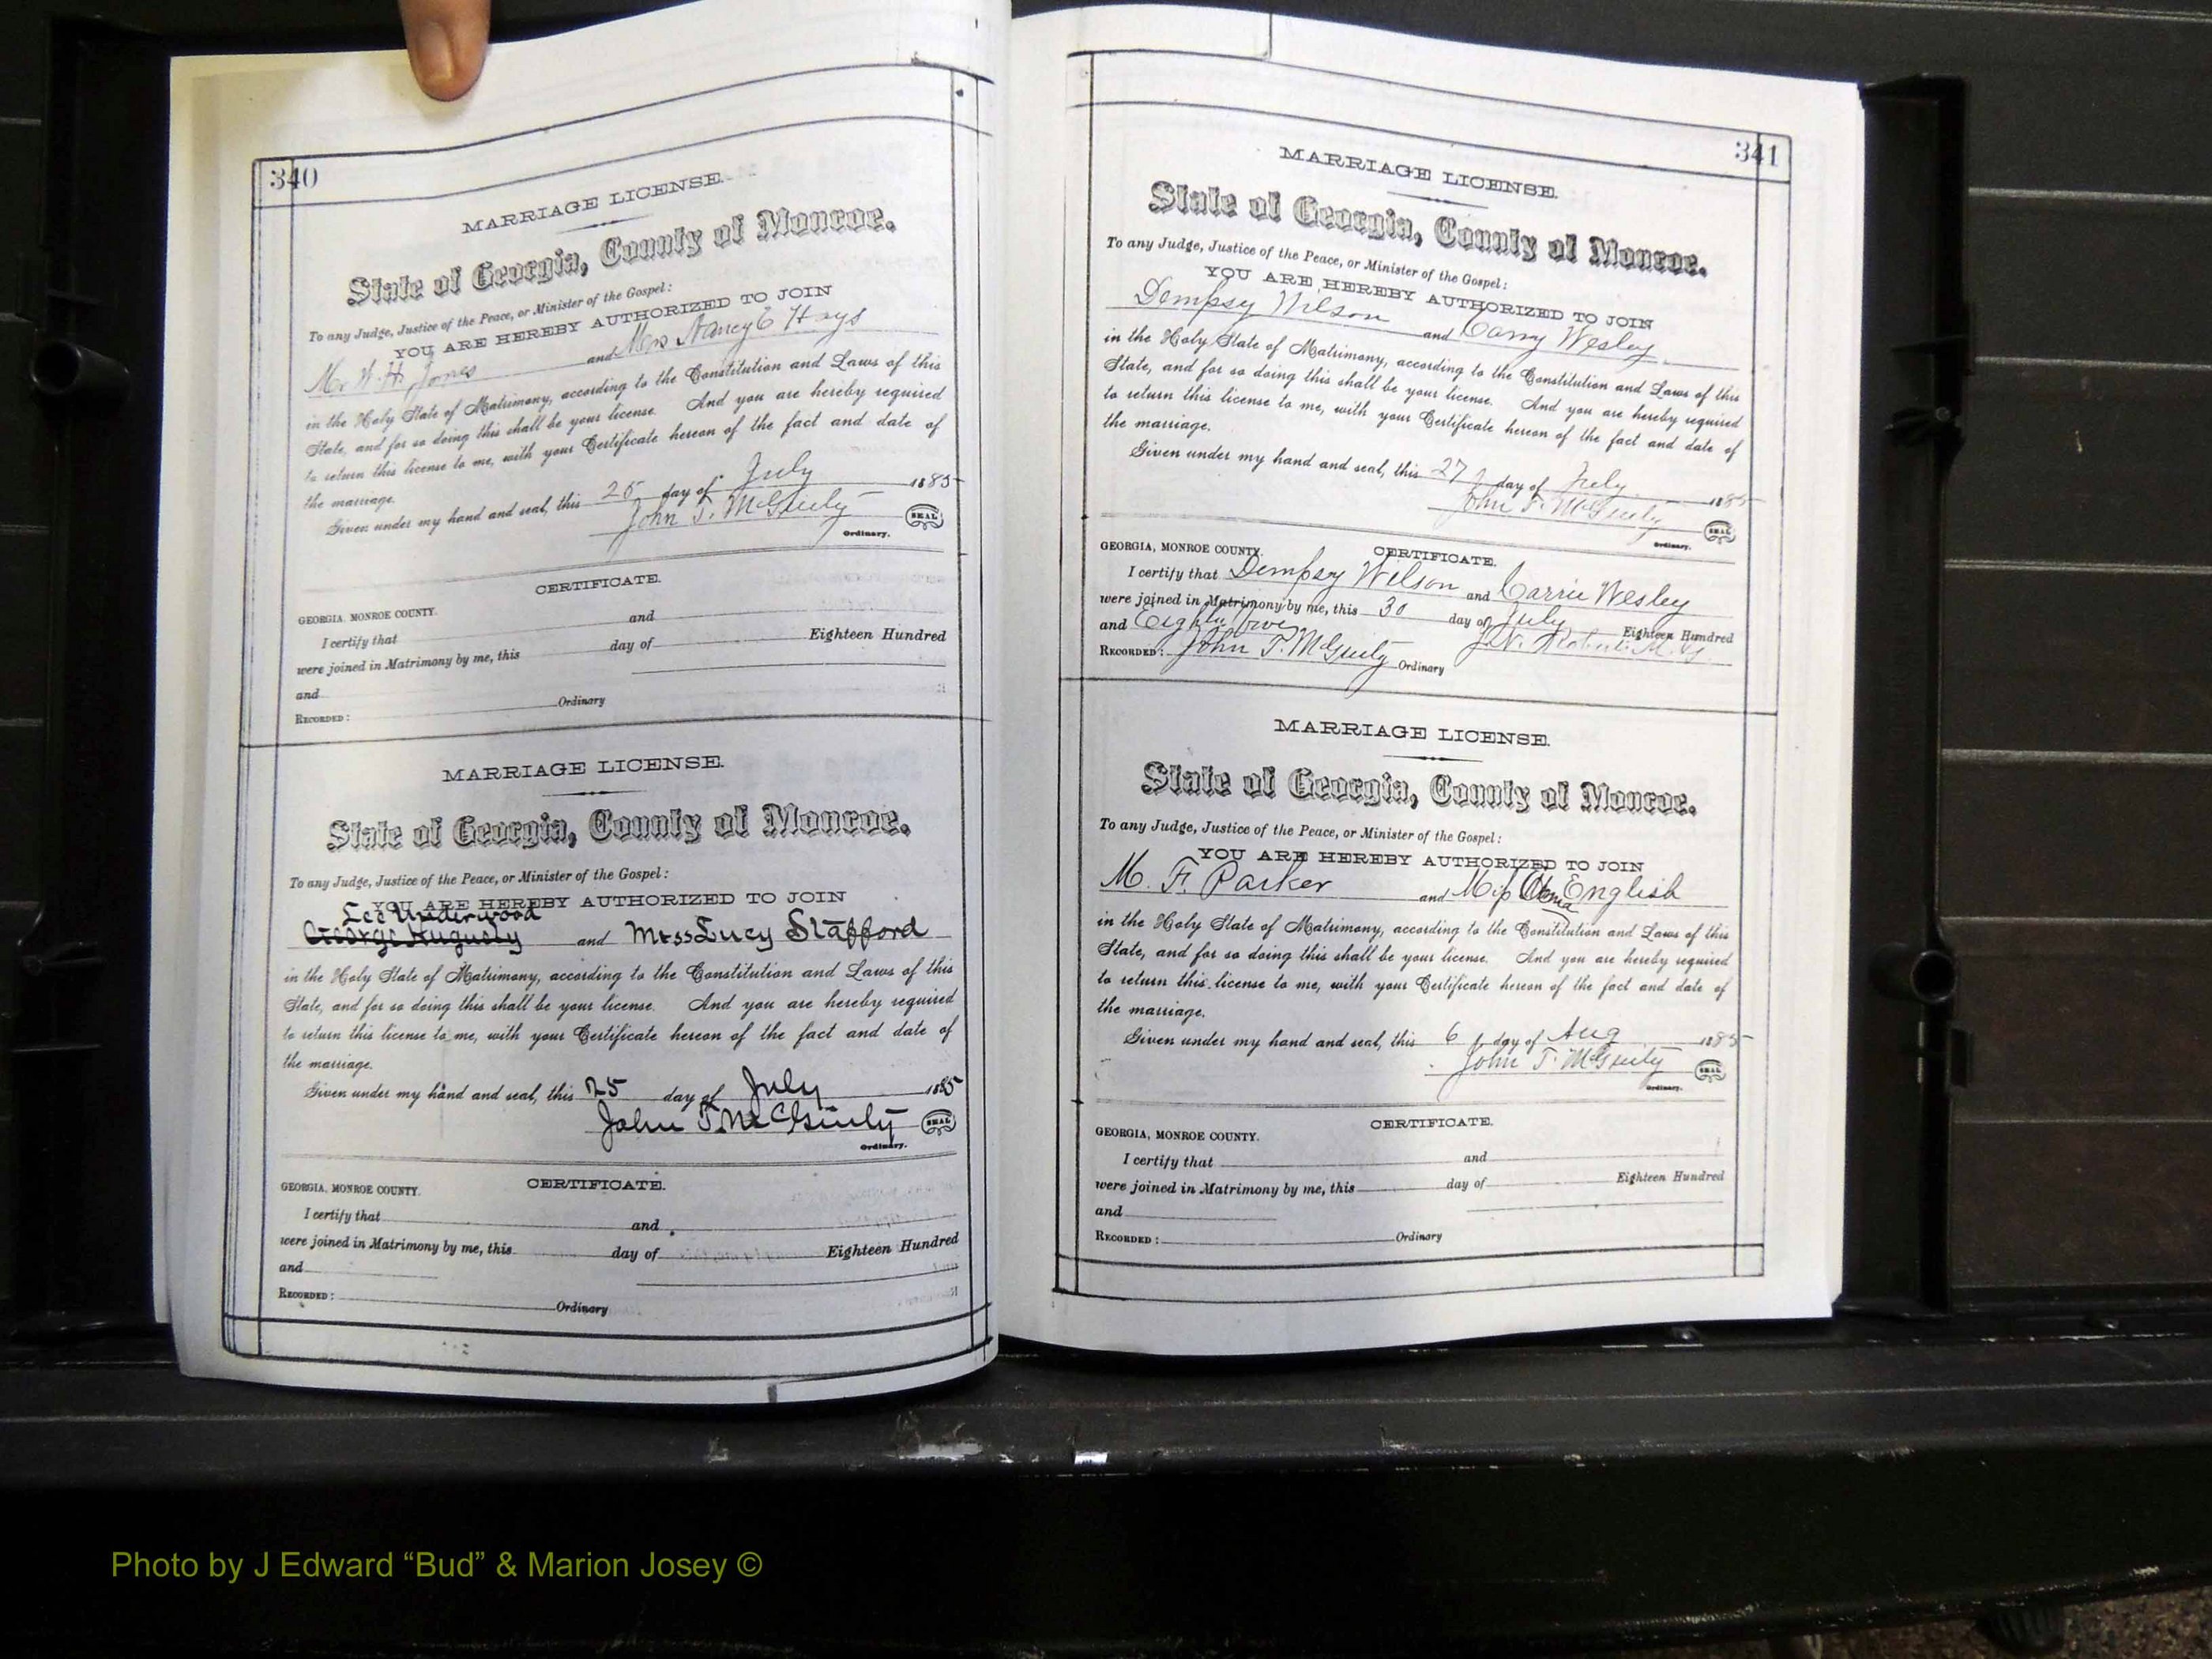 340
MARRIAGE LICENSE.
State of Georgia, County of Monroe.
To any Judge, Justice of the Peace, or Minister of the Gospel:
YOU ARE HEREBY AUTHORIZED TO JOIN
Mr W. H. Jones and Mrs Nancy E Hays
in the Holy State of Matrimony, according to the Constitution and Laws of this
State, and for so doing this shall be your license. And you are hereby required
to return this license to me, with your Certificate hereon of the fact and date of
the marriage.
Given under my hand and seal, this 25 day of July 1885
John T. McGinty SEAL
Ordinary.
CERTIFICATE.
GEORGIA, MONROE COUNTY.
I certify that and
were joined in Matrimony by me, this day of Eighteen Hundred
and
RECORDED: Ordinary
MARRIAGE LICENSE.
State of Georgia, County of Monroe.
To any Judge, Justice of the Peace, or Minister of the Gospel:
YOU ARE HEREBY AUTHORIZED TO JOIN
Lee Underwood
George Huguely and Miss Lucy Stafford
in the Holy State of Matrimony, according to the Constitution and Laws of this
State, and for so doing this shall be your license. And you are hereby required
to return this license to me, with your Certificate hereon of the fact and date of
the marriage.
Given under my hand and seal, this 25 day of July 1885
John T. McGinty SEAL
Ordinary.
GEORGIA, MONROE COUNTY. CERTIFICATE.
I certify that and
were joined in Matrimony by me, this day of Eighteen Hundred
and
RECORDED: Ordinary
341
MARRIAGE LICENSE.
State of Georgia, County of Monroe.
To any Judge, Justice of the Peace, or Minister of the Gospel:
YOU ARE HEREBY AUTHORIZED TO JOIN
Dempsy Wilson and Carry Wesley
in the Holy State of Matrimony, according to the Constitution and Laws of this
State, and for so doing this shall be your license. And you are hereby required
to return this license to me, with your Certificate hereon of the fact and date of
the marriage.
Given under my hand and seal, this 27 day of July 1885
John T. McGinty SEAL
Ordinary.
GEORGIA, MONROE COUNTY. CERTIFICATE.
I certify that Dempsy Wilson and Carrie Wesley
were joined in Matrimony by me, this 30 day of July Eighteen Hundred
and Eighty five J. N.
RECORDED: John T. McGinty Ordinary
MARRIAGE LICENSE.
State of Georgia, County of Monroe.
To any Judge, Justice of the Peace, or Minister of the Gospel:
YOU ARE HEREBY AUTHORIZED TO JOIN
M. F. Parker and Miss English
in the Holy State of Matrimony, according to the Constitution and Laws of this
State, and for so doing this shall be your license. And you are hereby required
to return this license to me, with your Certificate hereon of the fact and date of
the marriage.
Given under my hand and seal, this 6 day of Aug 1885
John T. McGinty SEAL
Ordinary.
CERTIFICATE.
GEORGIA, MONROE COUNTY.
I certify that and
were joined in Matrimony by me, this day of Eighteen Hundred
and
RECORDED: Ordinary
Photo by J Edward “Bud” & Marion Josey ©